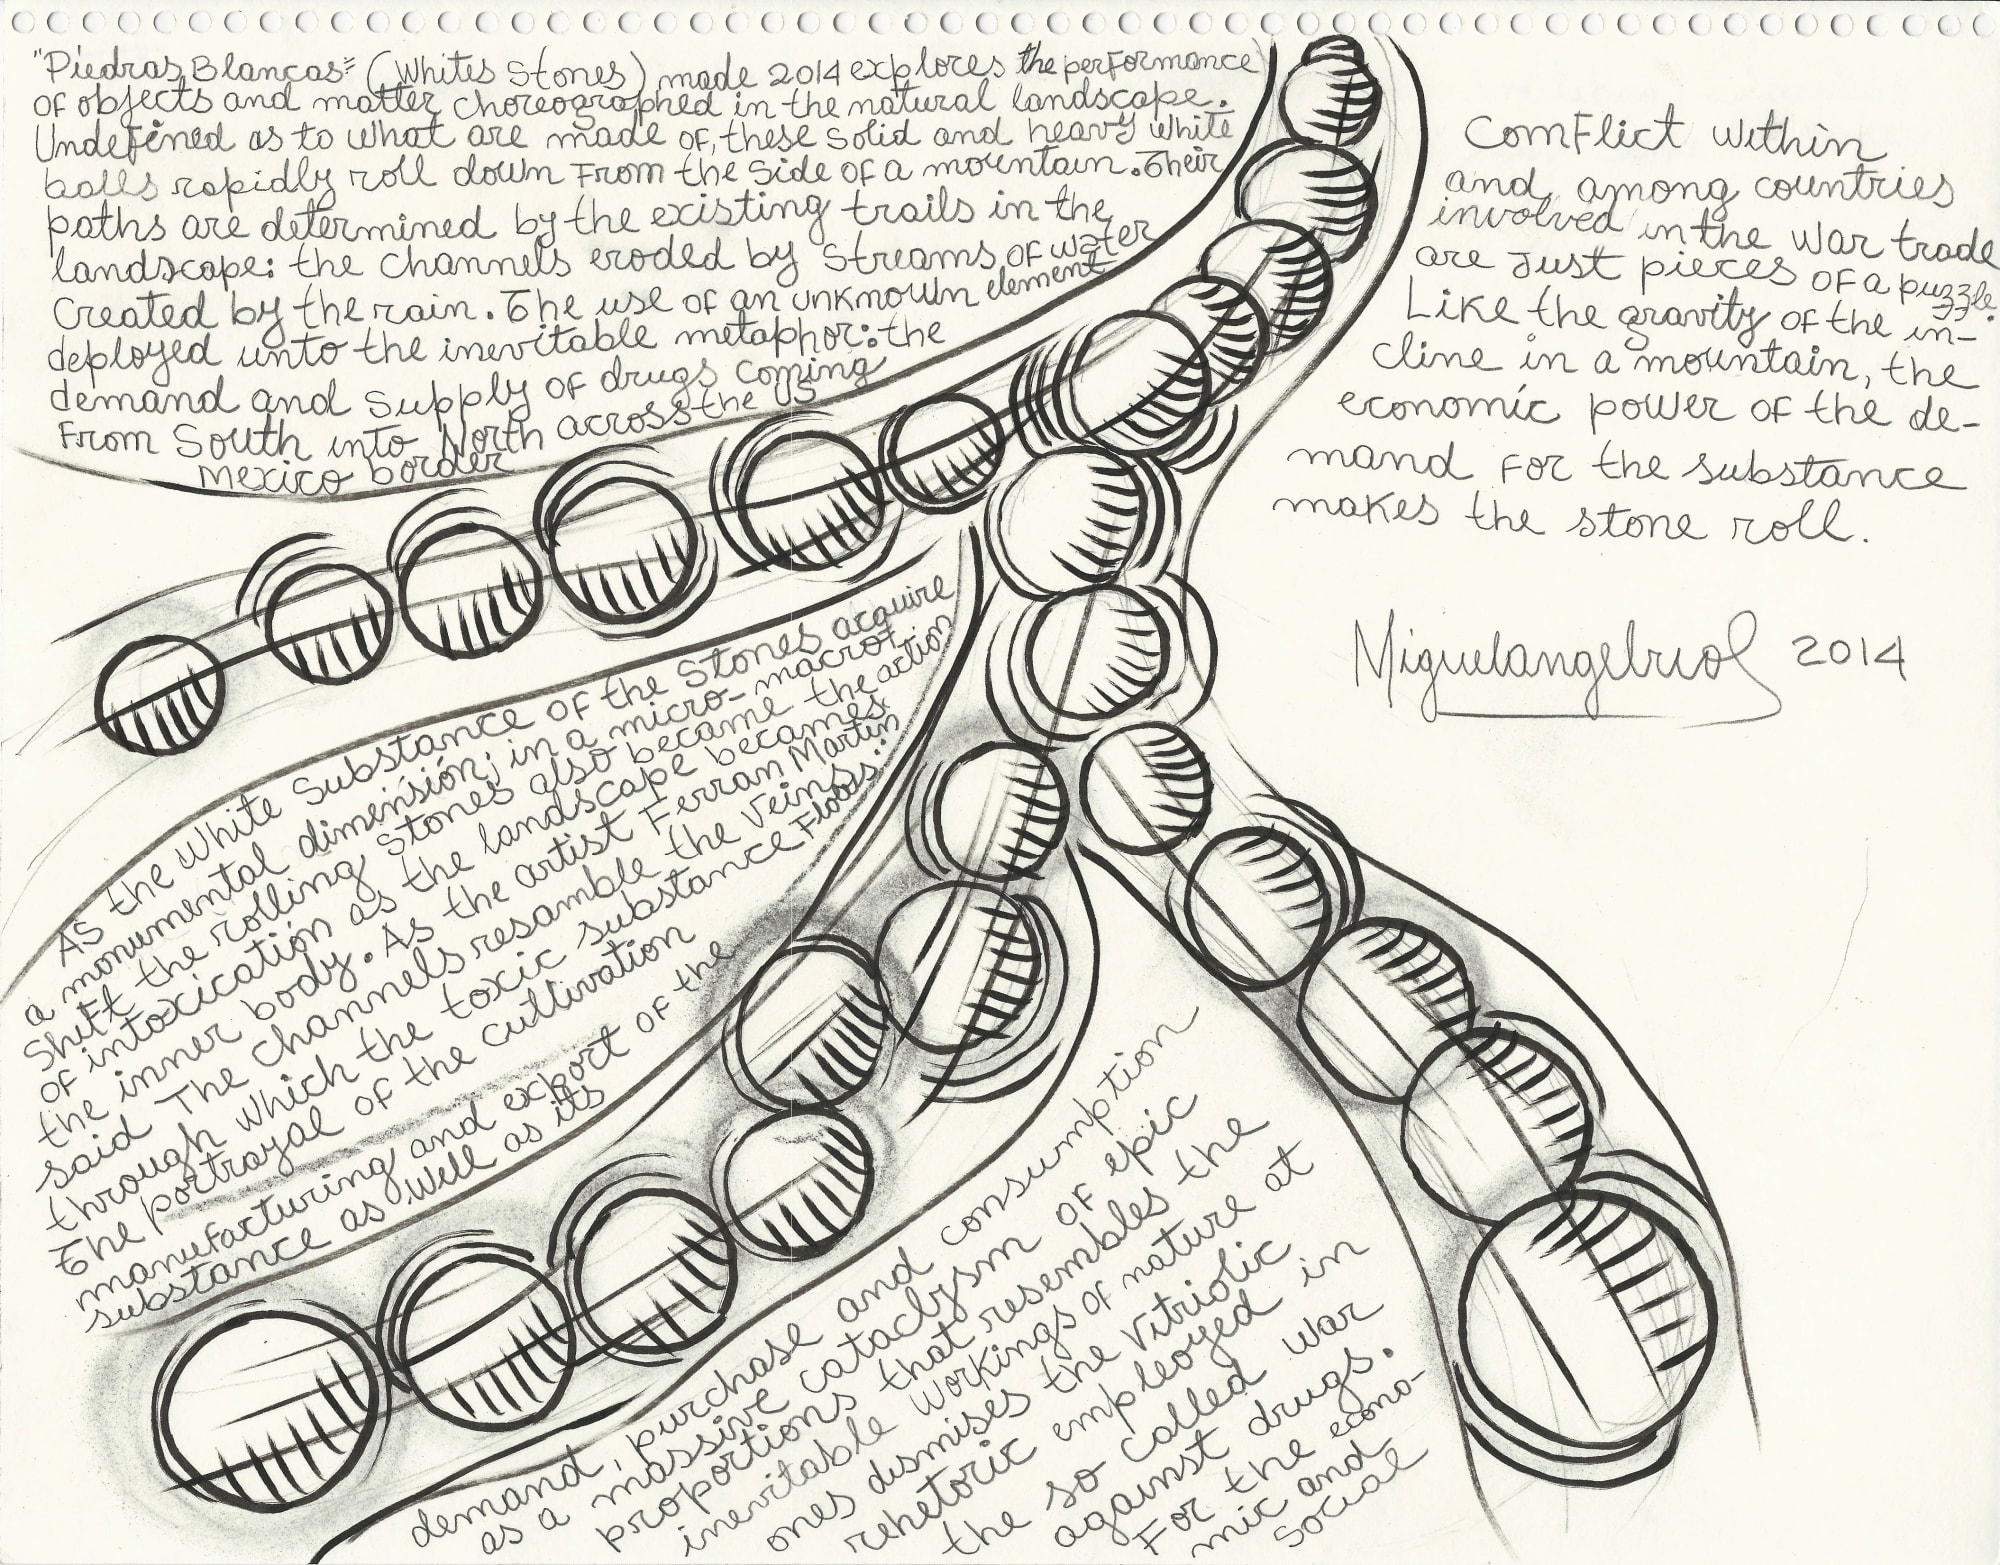 "Piedras Blancas" (Whites Stones) made 2014 explores the performance
of objects and matter choreographed in the natural landscape.
Undefined as to what are made of, these solid and heavy white
balls rapidly roll down from the side of a mountain. Their
paths are determined by the existing trails in the
landscape: the channels eroded by streams of water
created by the rain. The use of an unknown element
deployed unto the inevitable metaphor: the
demand and supply of drugs coming
from South into North across the US
Mexico border
As the white substance of the stones acquire
a monumental dimensión; in a micro-macrot
shift the rolling stones also became the action
of intoxication as the landscape becames
the inner body. As the artist Ferran Martin
said "The channels resamble the veins
through which the toxic substance flows:"
The portrayal of the cultivation
manufacturing and export of the
substance as well as its
demand, purchase and consumption
as a massive cataclysm of epic
proportions that resembles the
inevitable workings of nature at
ones dismises the vitriolic
rehetoric empleoyed in
the so called war
against drugs.
For the econo-
mic and
social
ComFlict within
and among countries
involved in the war trade
are just pieces of a puzzle.
Like the gravity of the in-
cline in a mountain, the
economic power of the de-
mand for the substance
makes the stone roll.
Miguelangelrios 2014